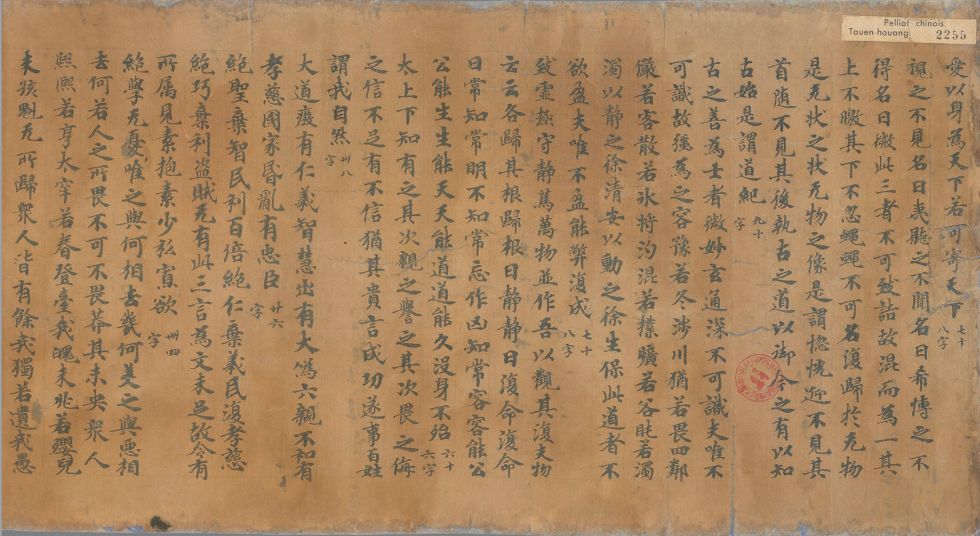 Pelliot chinois
Touen-houang 2255
愛以身為天下若可寄天下 七十八字
視之不見名曰夷聽之不聞名曰希博之不
得名曰微此三者不可致詰故混而為一其
上不曒其下不忽蠅蠅不可名復歸於无物
是无狀之狀无物之像是謂惚恍迎不見其
首随不見其後執古之道以御今之有以知
古始是謂道紀 九十字
古之善為士者微妙玄通深不可識夫唯不
可識故彊為之容豫若冬涉川猶若畏四鄰
儼若客散若氷將汋混若樸曠若谷肫若濁
濁以静之徐清安以動之徐生保此道者不
欲盈夫唯不盈能弊復成 七十八字
致虛極守静萬萬物並作吾以觀其復夫物
云云各歸其根歸根曰静静曰復命復命
曰常知常明不知常忘作凶知常容容能公
公能生生能天天能道道能久没身不殆 六十六字
太上下知有之其次親之譽之其次畏之侮
之信不足有不信猶其貴言成功遂事百姓
謂我自然 卌八字
大道癈有仁義智慧出有大偽六親不和有
孝慈國家昏亂有忠臣 廿六字
絕聖棄智民利百倍絕仁棄義民復孝慈
絕巧棄利盗賊无有此三言為文未足故令有
所属見素抱素少私寡欲 卌四字
絕學无憂唯之與何相去幾何美之與惡相
去何若人之所畏不可不畏莽其未央眾人
熙熙若亨太牢若春登臺我魄未兆若嬰兒
未孩魁无所歸眾人皆有餘我獨若遺我愚